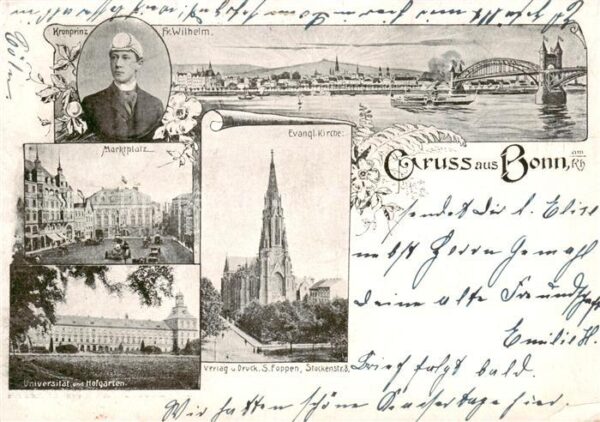 Kronprinz
Fr. Wilhelm.
Evangl. Kirche.
Marktplatz
Gruss aus Bonn, am
Rh
sendet Dir l. Elise
nebst Herrn Gemahl
Deine alte Freundschaft
Emilie H.
Brief folgt bald.
Universität und Hofgarten.
Verlag u Druck. S. Foppen, Stockenstr. 8.
Wir hatten schöne Kaisertage hier.